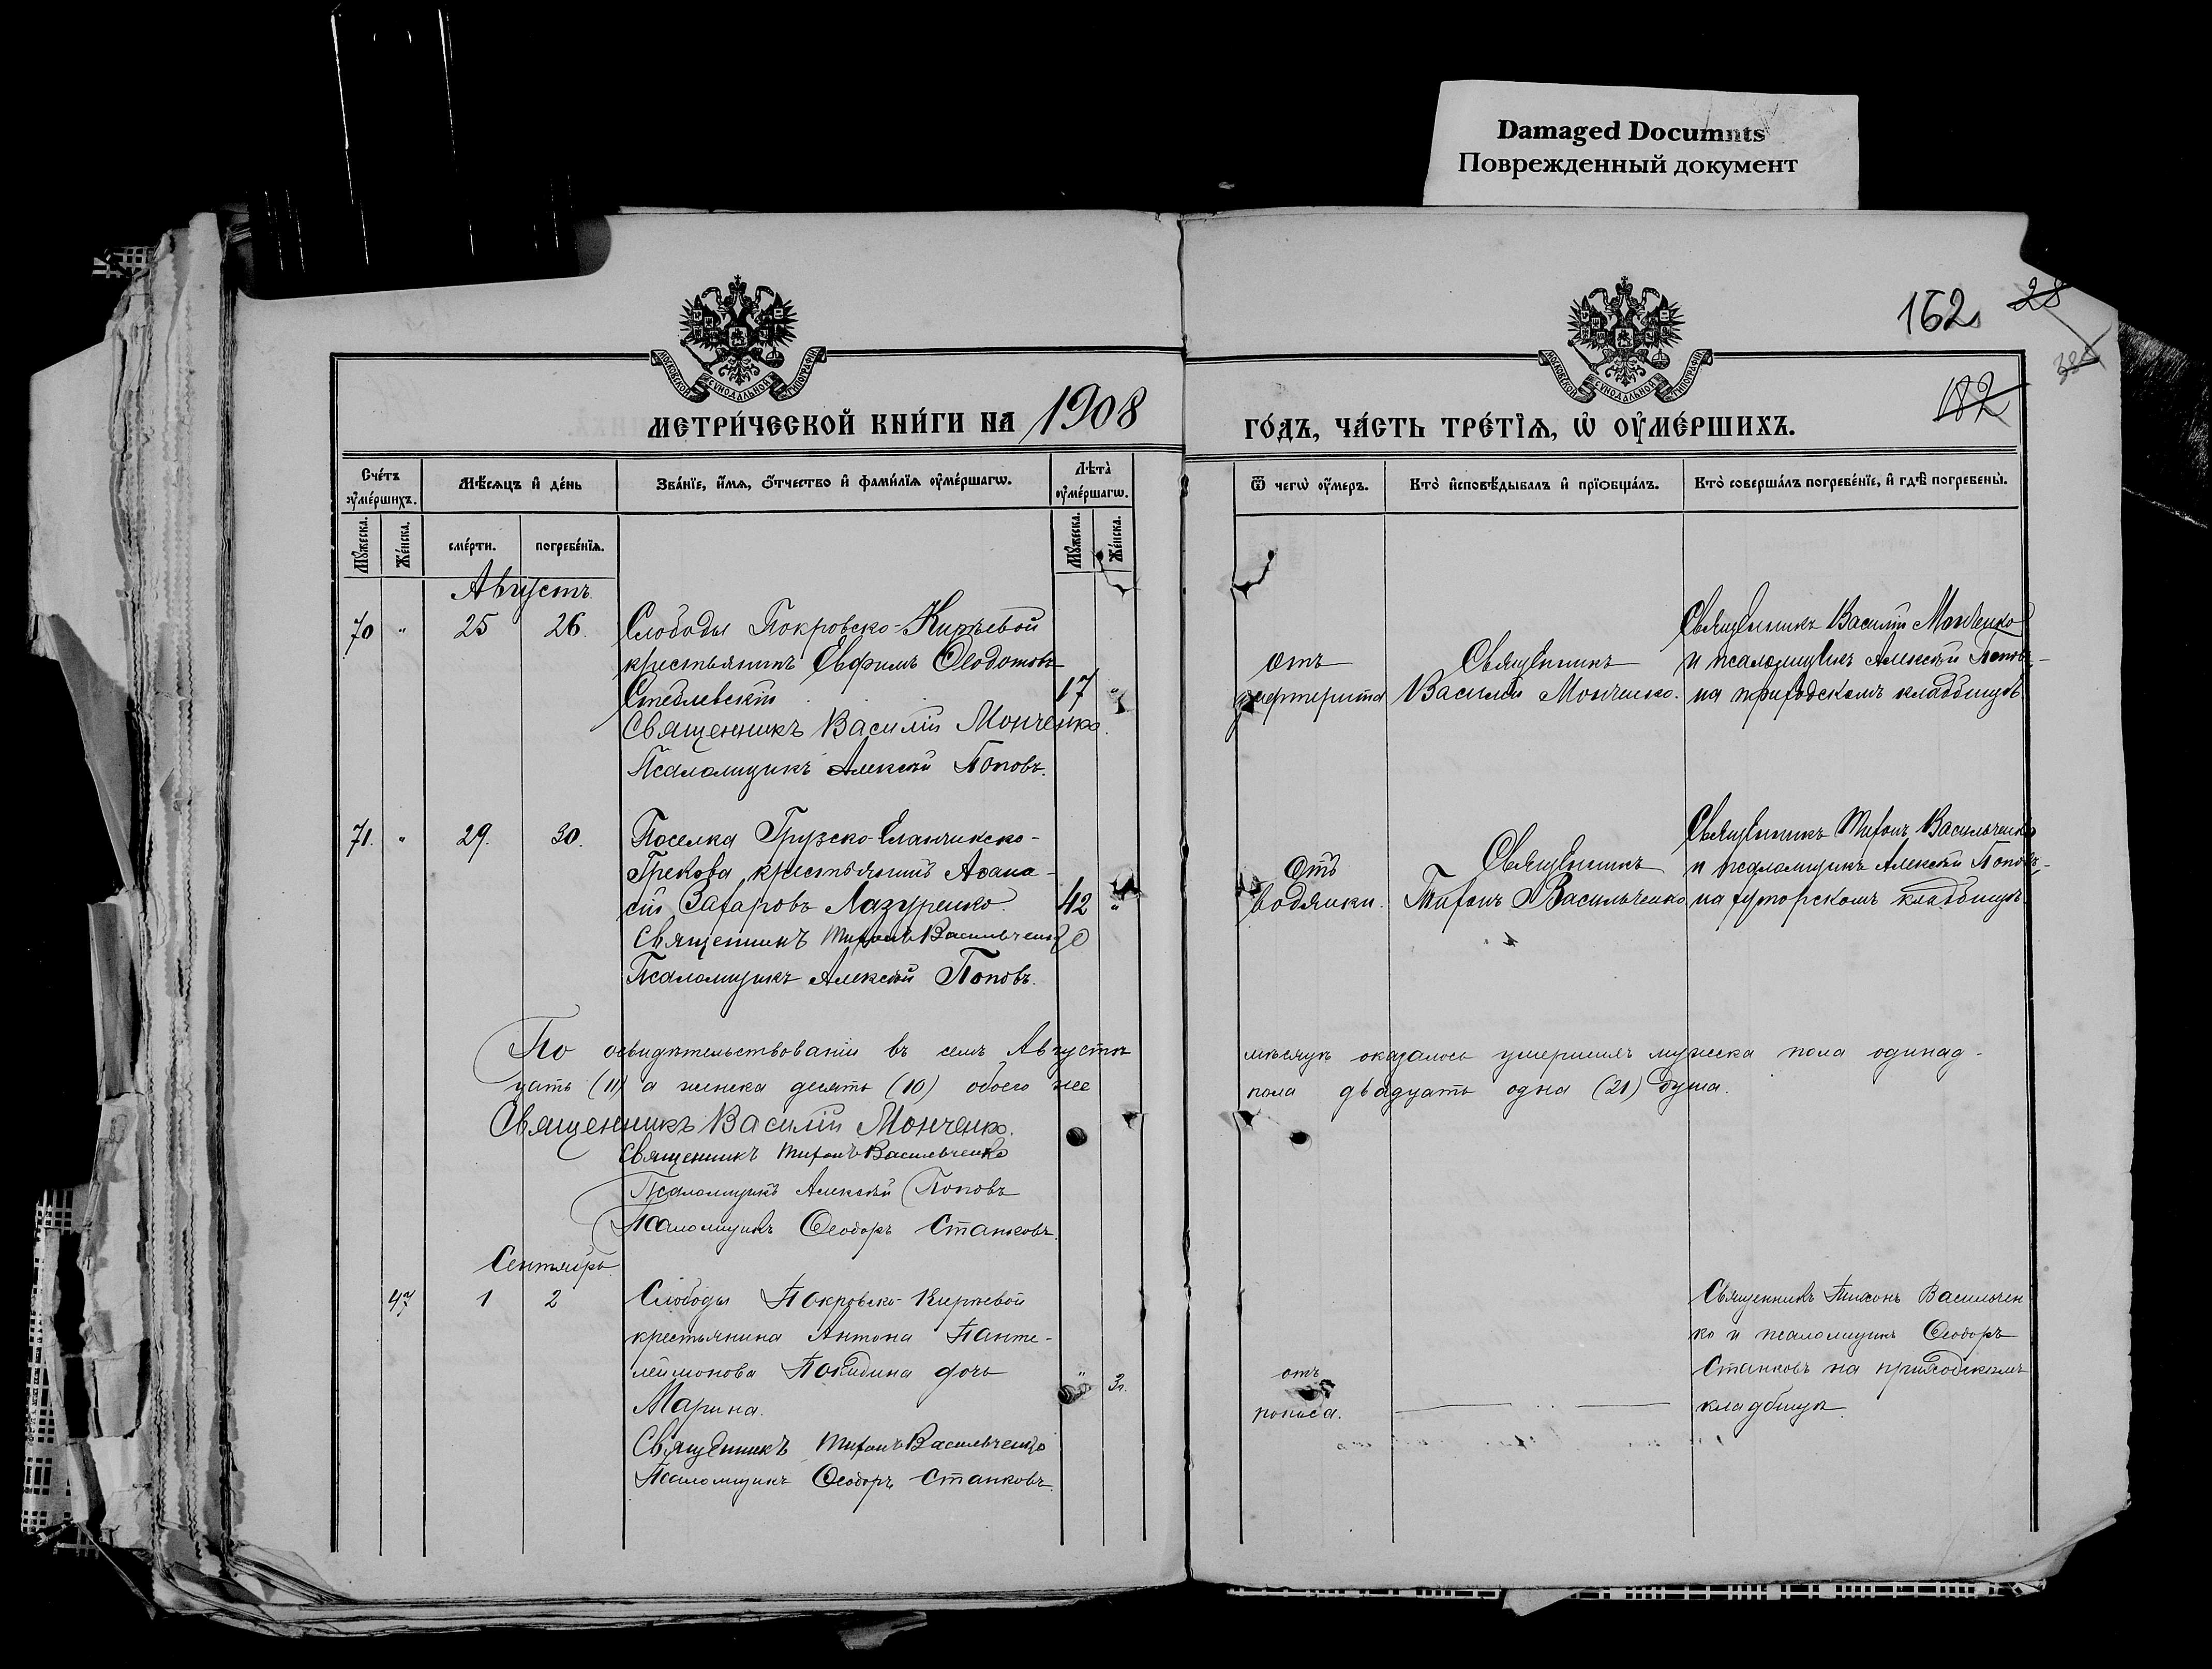 Damaged Documnts
Поврежденный документ
162
28
182
МОСКОВСКОЙ СѴНОДАЛЬНОЙ ТИПОГРАФІИ
МОСКОВСКОЙ СѴНОДАЛЬНОЙ ТИПОГРАФІИ
МЕТРИ́ЧЕСКОЙ КНИ́ГИ НА 1908
ГО́ДЪ, ЧА́СТЬ ТРЕ́ТІѦ, Ѡ҆ ОУ҆МЕ́РШИХЪ.
Сче́тъ оу҆ме́ршихъ.
Мꙋ́жеска.
Же́нска.
Мѣ́сяцъ и҆ де́нь
сме́рти.
погребе́нїѧ.
Зва́нїе, и҆́мѧ, ѻ҆́тчество и҆ фами́лїѧ оу҆ме́ршагѡ.
Лѣ́та̀ оу҆ме́ршагѡ.
Мꙋ́жеска.
Же́нска.
Ѿ чегѡ̀ оу҆́меръ.
Кто̀ и҆сповѣ́дывалъ и҆ прїѡбща́лъ.
Кто̀ соверша́лъ погребе́нїе, и҆ гдѣ̀ погребены̀.
Августъ
70 " 25 26.
Слободы Покровско-Кирѣевой
крестьянинъ Евфимъ Ѳеодотовъ
Стеблевскій 17 "
Священникъ Василій Монченко.
Псаломщикъ Алексѣй Поповъ.
отъ
дифтерита
Священникъ
Василій Мончейко.
Священникъ Василій Мончейко
и псаломщикъ Алексѣй Поповъ
на приходскомъ кладбищѣ.
71. " 29. 30.
Поселка Грузско-Еланчикско-
Грекова, крестьянинъ Аѳана-
сій Захаровъ Лазуренко. 42 "
Священникъ Тихонъ Васильченко
Псаломщикъ Алексѣй Поповъ.
Отъ
водянки.
Священникъ
Тихонъ Васильченко
Священникъ Тихонъ Васильченко
и псаломщикъ Алексѣй Поповъ,
на хуторскомъ кладбищѣ
По освидѣтельствованіи въ семъ Августѣ мѣсяцѣ оказалось умершихъ мужска пола одинад-
цать (11) а женска десять (10) обоего же пола двадцать одна (21) душа.
Священникъ Василій Мончейко.
Священникъ Тихонъ Васильченко
Псаломщикъ Алексѣй Поповъ
Псаломщикъ Ѳеодоръ Станковъ.
Сентябрь.
47 1 2
Слободы Покровско-Кирѣевой
крестьянина Антона Панте-
леймонова Покидина дочь
Марина. " 3г.
Священникъ Тихонъ Васильченко
Псаломщикъ Ѳеодоръ Станковъ.
отъ
поноса.
Священникъ Тихонъ Васильчен
ко и псаломщикъ Ѳеодоръ
Станковъ на приходскомъ
кладбищѣ.